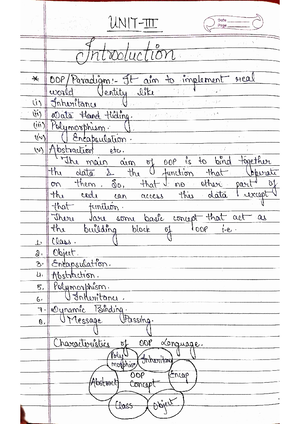 UNIT-III
Date
Page
Introduction
* OOP/Paradigm:- It aim to implement real
world entity like
(i) Inheritance
(ii) Data Hand Hiding.
(iii) Polymorphism.
(iv) Encapsulation.
(v) Abstraction etc.
The main aim of OOP is to bind together
the data & the function that operate
on them. So, that no other part of
the code can access this data except
that funition.
There are some basic concept that act as
the building block of OOP i.e.
1. Class.
2. Object.
3. Encapsulation.
4. Abstraction.
5. Polymorphism.
6. Inheritance.
7. Dynamic Binding.
8. Message Passing.
Characteristics of OOP Language.
Poly
morphism
Inheritance
Abstract
OOP
Concept
Encap
Class
Object